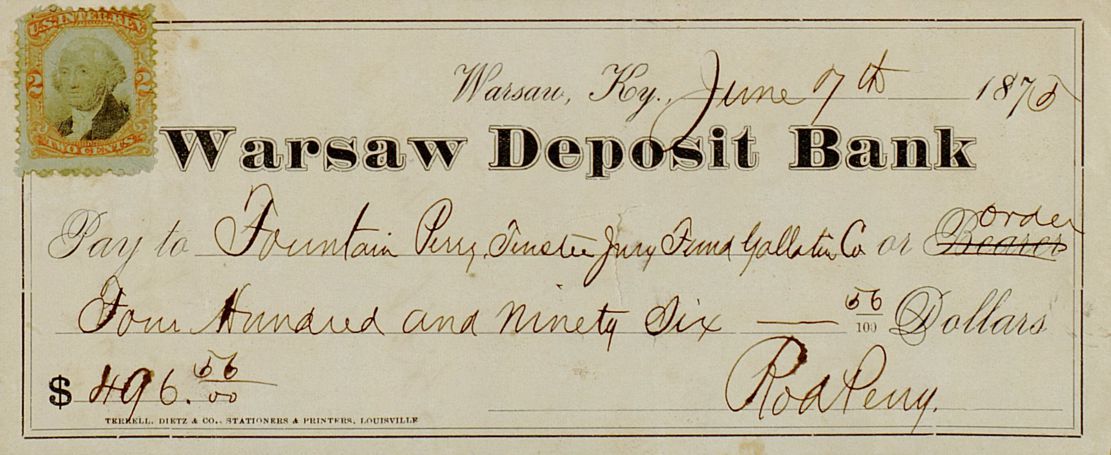 U.S. INTER. REV.
2 2
TWO CENTS
Warsaw, Ky., June 7th 1875
Warsaw Deposit Bank
order
Pay to Fountain Perry, Trustee Jury Fund Gallatin Co or Bearer
Four Hundred and Ninety Six — 56/100 Dollars
$ 496.56/00
Rod Perry.
TERRELL, DIETZ & CO., STATIONERS & PRINTERS, LOUISVILLE